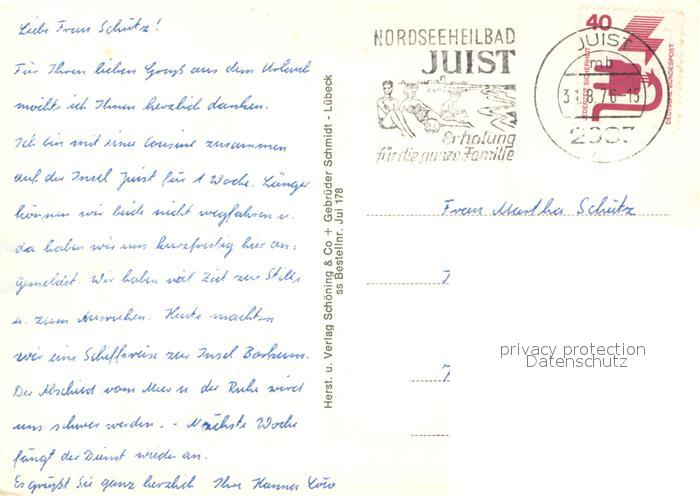 Liebe Frau Schütz!
Für Ihren lieben Gruß aus dem Urlaub
möchte ich Ihnen herzlich danken.
Ich bin mit einer Cousine zusammen
auf der Insel Juist für 1 Woche. Länger
können wir beide nicht wegfahren u.
da haben wir uns kurzfristig hier an=
gemeldet. Wir haben viel Zeit zur Stille
u. zum Ausruhen. Heute machten
wir eine Schiffsreise zur Insel Borkum.
Der Abschied vom Meer u der Ruhe wird
uns schwer werden. - Nächste Woche
fängt der Dienst wieder an.
Es grüßt Sie ganz herzlich Ihre Hanna
Herst. u. Verlag Schöning & Co + Gebrüder Schmidt - Lübeck
ss Bestellnr. Jui 178
NORDSEEHEILBAD
JUIST
Erholung
für die ganze Familie
JUIST
mb
31.8.76-15
2983
40
JEDERZEIT SICHERHEIT
DEUTSCHE BUNDESPOST
Frau Martha Schütz
privacy protection
Datenschutz